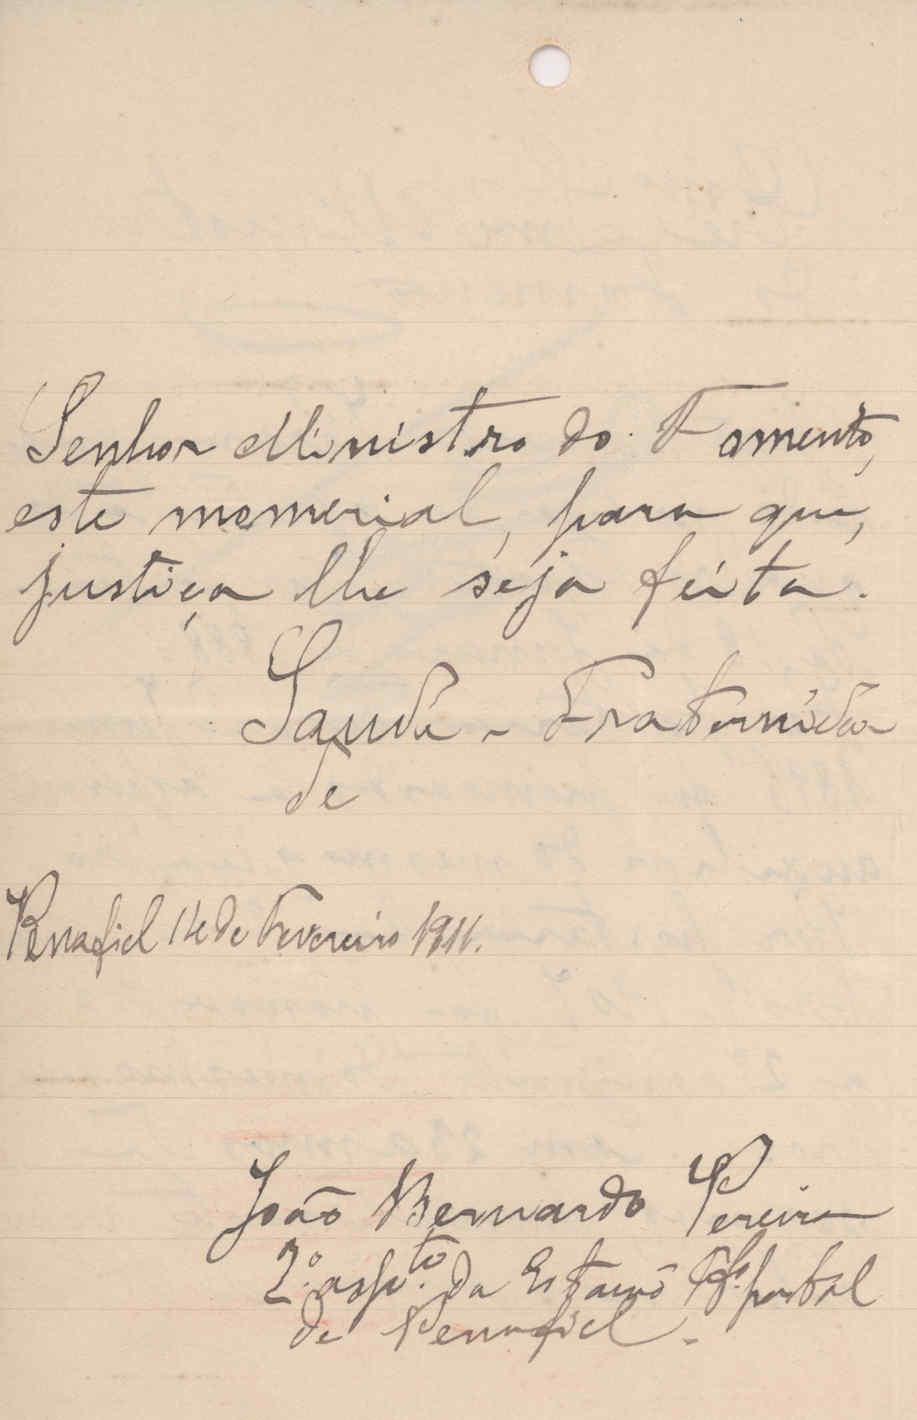 Senhor Ministro do Fomento,
este memerial, para que,
justiça lhe seja feita.
Saude e Fraternida
de
Penafiel 14 de Fevereiro 1911.
João Bernardo Pereira
2.º asp.te da Estação postal
de Penafiel.